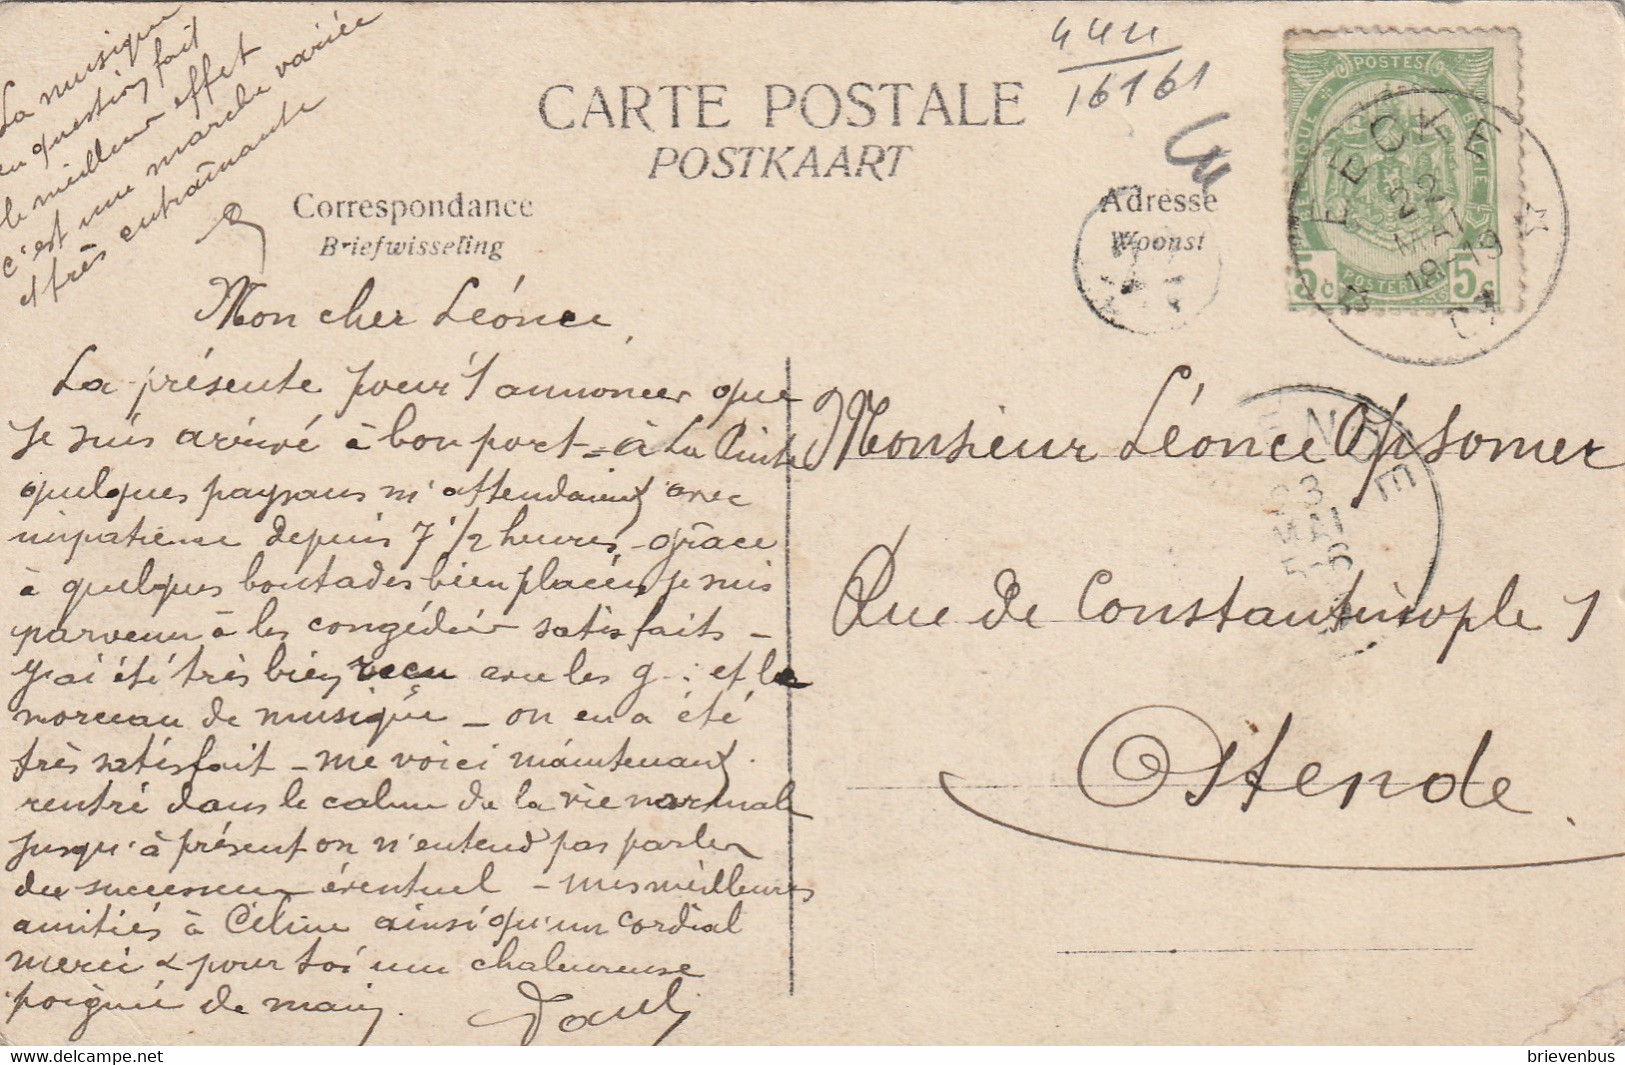 La musique
en question fait
le meilleur effet
c'est une marche variée
et très entraînante
CARTE POSTALE
POSTKAART
Correspondance
Briefwisseling
Adresse
Woonst
44 u
16161
POSTES
BELGIQUE
BELGIE
POSTERIJEN
5c
5c
EECKE
22
MAI
18-19
07
23
MAI
5-6
Mon cher Léonce,
La présente pour t'annoncer que
je suis arrivé à bon port - à La Pinte
quelques paysans m'attendaient avec
impatience depuis 7 1/2 heures, grâce
à quelques boutades bien placées, je suis
parvenu à les congédier satisfaits -
J'ai été très bien reçu avec les g.: et le
morceau de musique - on en a été
très satisfait - me voici maintenant
rentré dans le calme de la vie normale
Jusqu'à présent on n'entend pas parler
du successeur éventuel - mes meilleures
amitiés à Céline ainsi qu'un cordial
merci & pour toi une chaleureuse
poignée de main.
Paul
Monsieur Léonce Opsomer
Rue de Constantinople 1
Ostende.
brievenbus